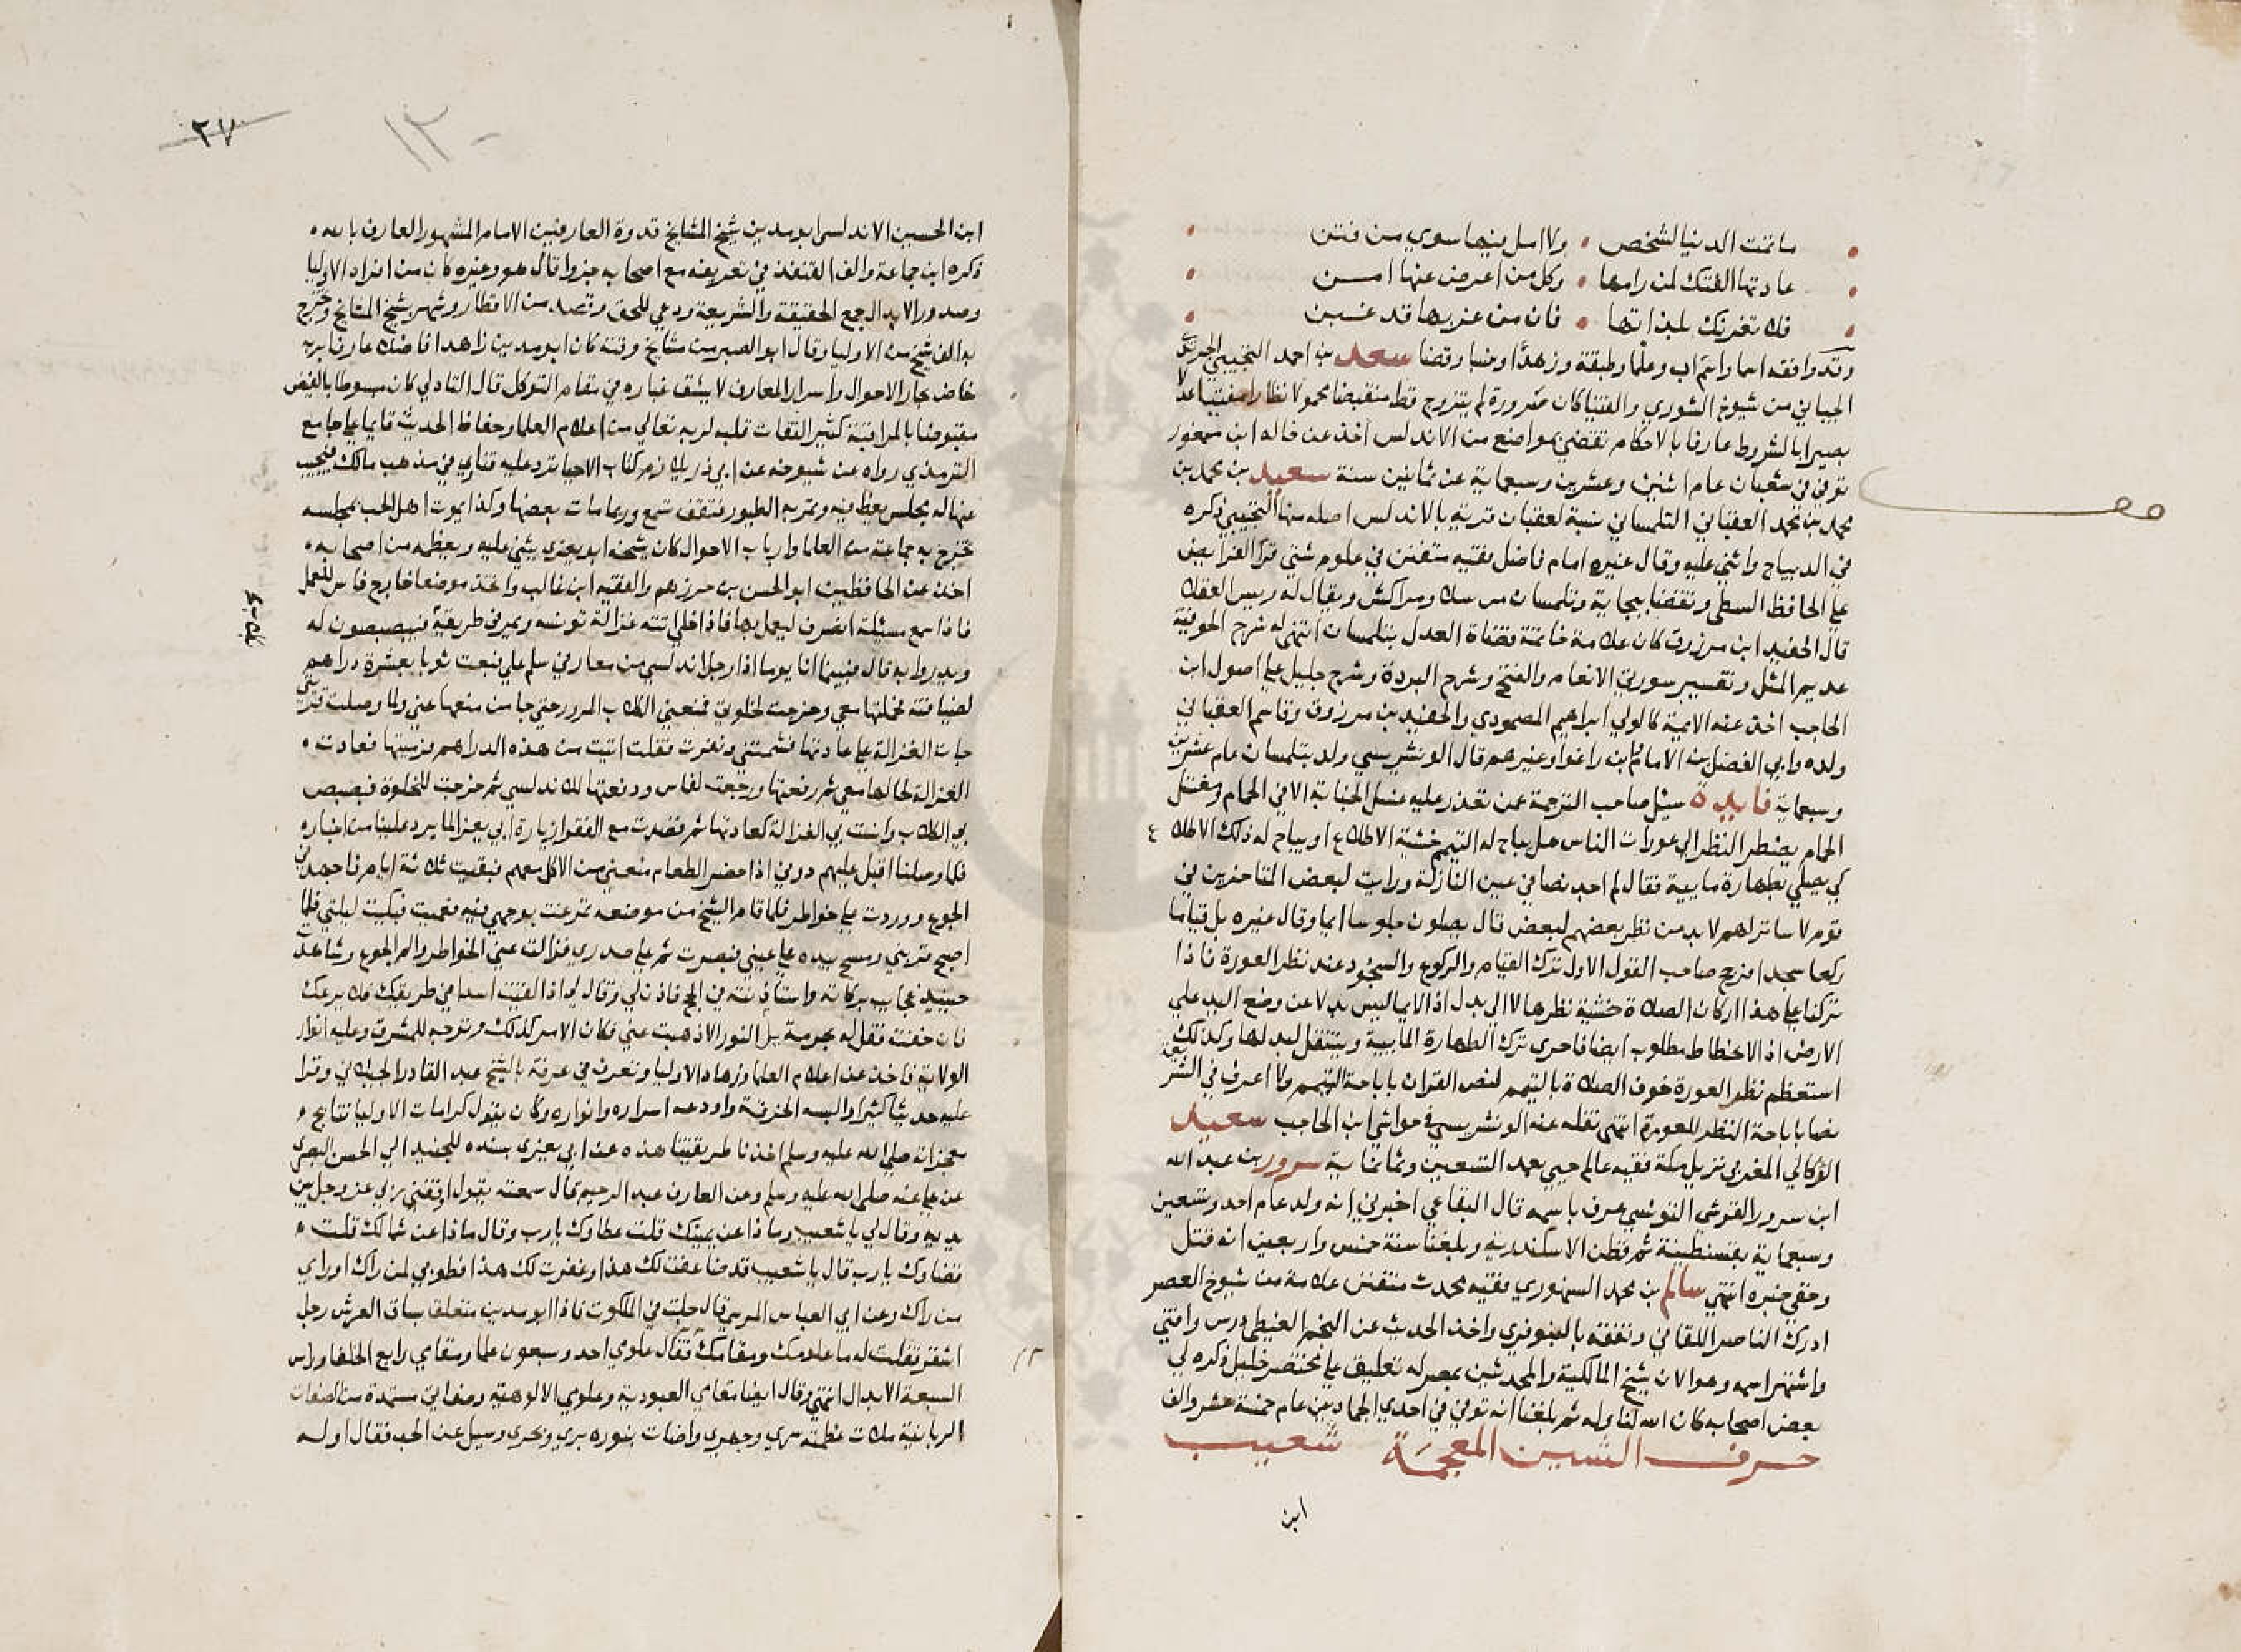 ما تمت الدنيا لشخص ولا امل فيها سوي من فتن
عادتها الفتك لمن رامها وكل من اعرض عنها امن
فلا تغرنك بلذاتها فان من غر بها قد غبن
وقد وافقه اسما واسم اب وعلما وطبقة وزهدا وقضا سعد بن احمد التجيبي
الجياني من شيوخ الشوري والفتيا كان صرورة لم يتزوج قط منقبضا
بصيرا بالشروط عارفا بالاحكام تقضي بمواضع من الاندلس اخذ عن خاله ابن
توفي في شعبان عام اثنين وعشرين وسبعماية عن ثمانين سنة سعيد بن محمد بن
محمد بن محمد العقباني التلمساني نسبة لعقبان قرية بالاندلس اصله منها التجيبي ذكره
في الديباج واثني عليه وقال غيره امام فاضل فقيه متفنن في علوم شتي قرا الفرايض
علي الحافظ السطي وتقضا ببجاية وتلمسان وسلا ومراكش ويقال له رييس العقلا
قال الحفيد ابن مرزوق كان علامة خاتمة قضاة العدل بتلمسان انتهي له شرح الحوفية
عديم المثل وتفسير سورتي الانعام والفتح وشرح البردة وشرح جليل علي اصول ابن
الحاجب اخذ عنه الايمة كالولي ابراهيم المصمودي والحفيد بن مرزوق وقاسم العقباني
ولده وابي الفضل بن الامام وغيرهم قال الونشريسي ولد بتلمسان عام عشرين
وسبعماية فايدة سيل صاحب الترجمة عن تعذر عليه غسل الجنابة الا في الحمام
الحمام يضطر النظر الي عورات الناس هل يباح له التيمم خشية الاطلاع او يباح له ذلك الاطلاع
كي يصلي بطهارة مايية فقال لم اجد نصا في عين النازلة ورايت لبعض المتاخرين في
قوم لا ساتر لهم لا بد من نظر بعضهم لبعض قال يصلون جلوسا ايما وقال غيره بل قياما
ركعا سجدا فزيح صاحب القول الاول ترك القيام والركوع والسجود عند نظر العورة فاذا
تركنا علي هذا اركان الصلاة خشية نظرها لا الي بدل اذ الايما ليس بدلا عن وضع اليد علي
الارض اذ الانحطاط مطلوب ايضا فاحري ترك الطهارة المايية وينتقل لبدلها وكذلك
استعظم نظر العورة خوف الصلاة بالتيمم لنص القران باباحة التيمم ولا اعرف في
نصا باباحة النظر للعورة انتهي نقله عنه الونشريسي في حواشي ابن الحاجب سعيد
المغربي نزيل مكة فقيه عالم حيي بعد التسعين وثمانماية سرور بن عبد الله
ابن سرور القرشي التونسي عرف باسمه قال البقاعي اخبرني انه ولد عام احد وتسعين
وسبعماية بقسنطينة ثم قطن الاسكندرية وبلغنا سنة خمس واربعين انه قتل
وخفي خبره انتهي سالم بن محمد السنهوري فقيه محدث متفنن علامة من شيوخ العصر
ادرك الناصر اللقاني وتفقه بالبنوفري واخذ الحديث عن النجم الغيطي ودرس وافتي
واشتهر اسمه وهو الان شيخ المالكية والمحدثين بمصر له تعليق علي مختصر خليل ذكره لي
بعض اصحابه كان الله لنا وله ثم بلغنا انه توفي في احدي الجمادين عام خمسة عشر والف
حرف الشين المعجمة شعيب
ابن
٢٧
١٣٠
ابن الحسين الاندلسي ابو مدين شيخ المشايخ قدوة العارفين الامام المشهور العارف بالله
ذكره ابن جماعة والف القنفذ في تعريفه مع اصحابه جزوا قال هو وغيره كان من افراد الاوليا
وصدور الابدال جمع الحقيقة والشريعة ودعي للحق وقصد من الاقطار وشهر بشيخ المشايخ وتخرج
به الف شيخ من الاوليا وقال ابو الصبر من مشايخ وقته كان ابو مدين زاهدا فاضلا عارفا بربه
خاض بحار الاحوال واسرار المعارف لا يشق غباره في مقام التوكل قال التادلي كان مبسوطا بالقبض
مقبوضا بالمراقبة كثير التفات قلبه لربه تعالي من اعلام العلما وحفاظ الحديث قايما علي جامع
الترمذي رواه عن شيوخه عن ابي ذر يلازم كتاب الاحيا ترد عليه فتاوي في مذهب مالك فيجيب
عنها له مجلس يعظ فيه وتمر به الطيور فتقف تسمع وربما مات بعضها وكذا يموت اهل الحب بمجلسه
تخرج به جماعة من العلما وارباب الاحوال كان شيخه ابو يعزي يثني عليه ويعظمه من اصحابه
اخذ عن الحافظين ابو الحسن بن حرزهم والفقيه ابن غالب واتخذ موضعا خارج فاس للعمل
فاذا سمع مسيلة انصرف ليعمل بها فاذا خلي اتته غزالة تونسه ويمر في طريقه فيبصبصون له
ويدوروا به قال فبينما انا يوما اذا رجل اندلسي من معارفي سلم علي فبعت ثوبا بعشرة دراهم
لضيافته فحملتها معي وخرجت لخلوتي فمنعني الكلاب المرور حتي جا من منعها عني ولما وصلت قريتي
جات الغزالة علي عادتها فشمتني ونفرت فقلت اتيت من هذه الدراهم فرميتها فعادت
الغزالة لحالها معي ثم رفعتها ورجعت لفاس ودفعتها للاندلسي ثم خرجت للخلوة فبصبص
بي الكلاب وانست بي الغزالة كعادتها ثم قصدت مع الفقرا زيارة ابي يعزا لما يرد علينا من اخباره
فلما وصلنا اقبل عليهم دوني اذا حضر الطعام منعني من الاكل معهم فبقيت ثلاثة ايام فاجهدني
الجوع ووردت علي خواطر فلما قام الشيخ من موضعه تمرغت بوجهي فيه فعميت فبكيت ليلتي فلما
اصبح قربني ومسح بيده علي عيني فبصرت ثم علي صدري فزالت عني الخواطر والم الجوع وشاهدت
حينيذ عجايب بركاته واستاذنته في الحج فاذن لي وقال لي اذا لقيت اسدا في طريقك فلا يرعك
فان خفته فقل له بحرمة يل النور الا ذهبت عني فكان الامر كذلك وتوجه للمشرق وعليه انوار
الولاية فاخذ عن اعلام العلما وزهاد الاوليا وتعرف في عرفة بالشيخ عبد القادر الجيلاني وقرا
عليه حديثا كثيرا والبسه الخرقة واودعه اسراره وانواره وكان يقول كرامات الاوليا نتايج
معجزاته صلي الله عليه وسلم اخذنا طريقتنا هذه عن ابي يعزي بسنده للجنيد الي الحسن البصري
عن علي عنه صلي الله عليه وسلم وعن العارف عبد الرحيم قال سمعته يقول اوقفني ربي عز وجل بين
يديه وقال لي يا شعيب وماذا عن يمينك قلت عطاوك يا رب وقال ماذا عن شمالك قلت
قضاوك يا رب قال يا شعيب قد ضاعفت لك هذا وغفرت لك هذا فطوبي لمن راك او راي
من راك وعن ابي العباس المرسي قال جلت في الملكوت فاذا ابو مدين متعلق بساق العرش رجل
اشقر فقلت له ما علومك ومقامك فقال علومي احد وسبعون علما ومقامي رابع الخلفا وراس
السبعة الابدال انتهي وقال ايضا مقامي العبودية وعلومي الالوهية وصفاتي مستمدة من الصفات
الربانية ملات عظمته سري وجهري واضات بنوره بري وبحري وسيل عن الحب فقال اوله